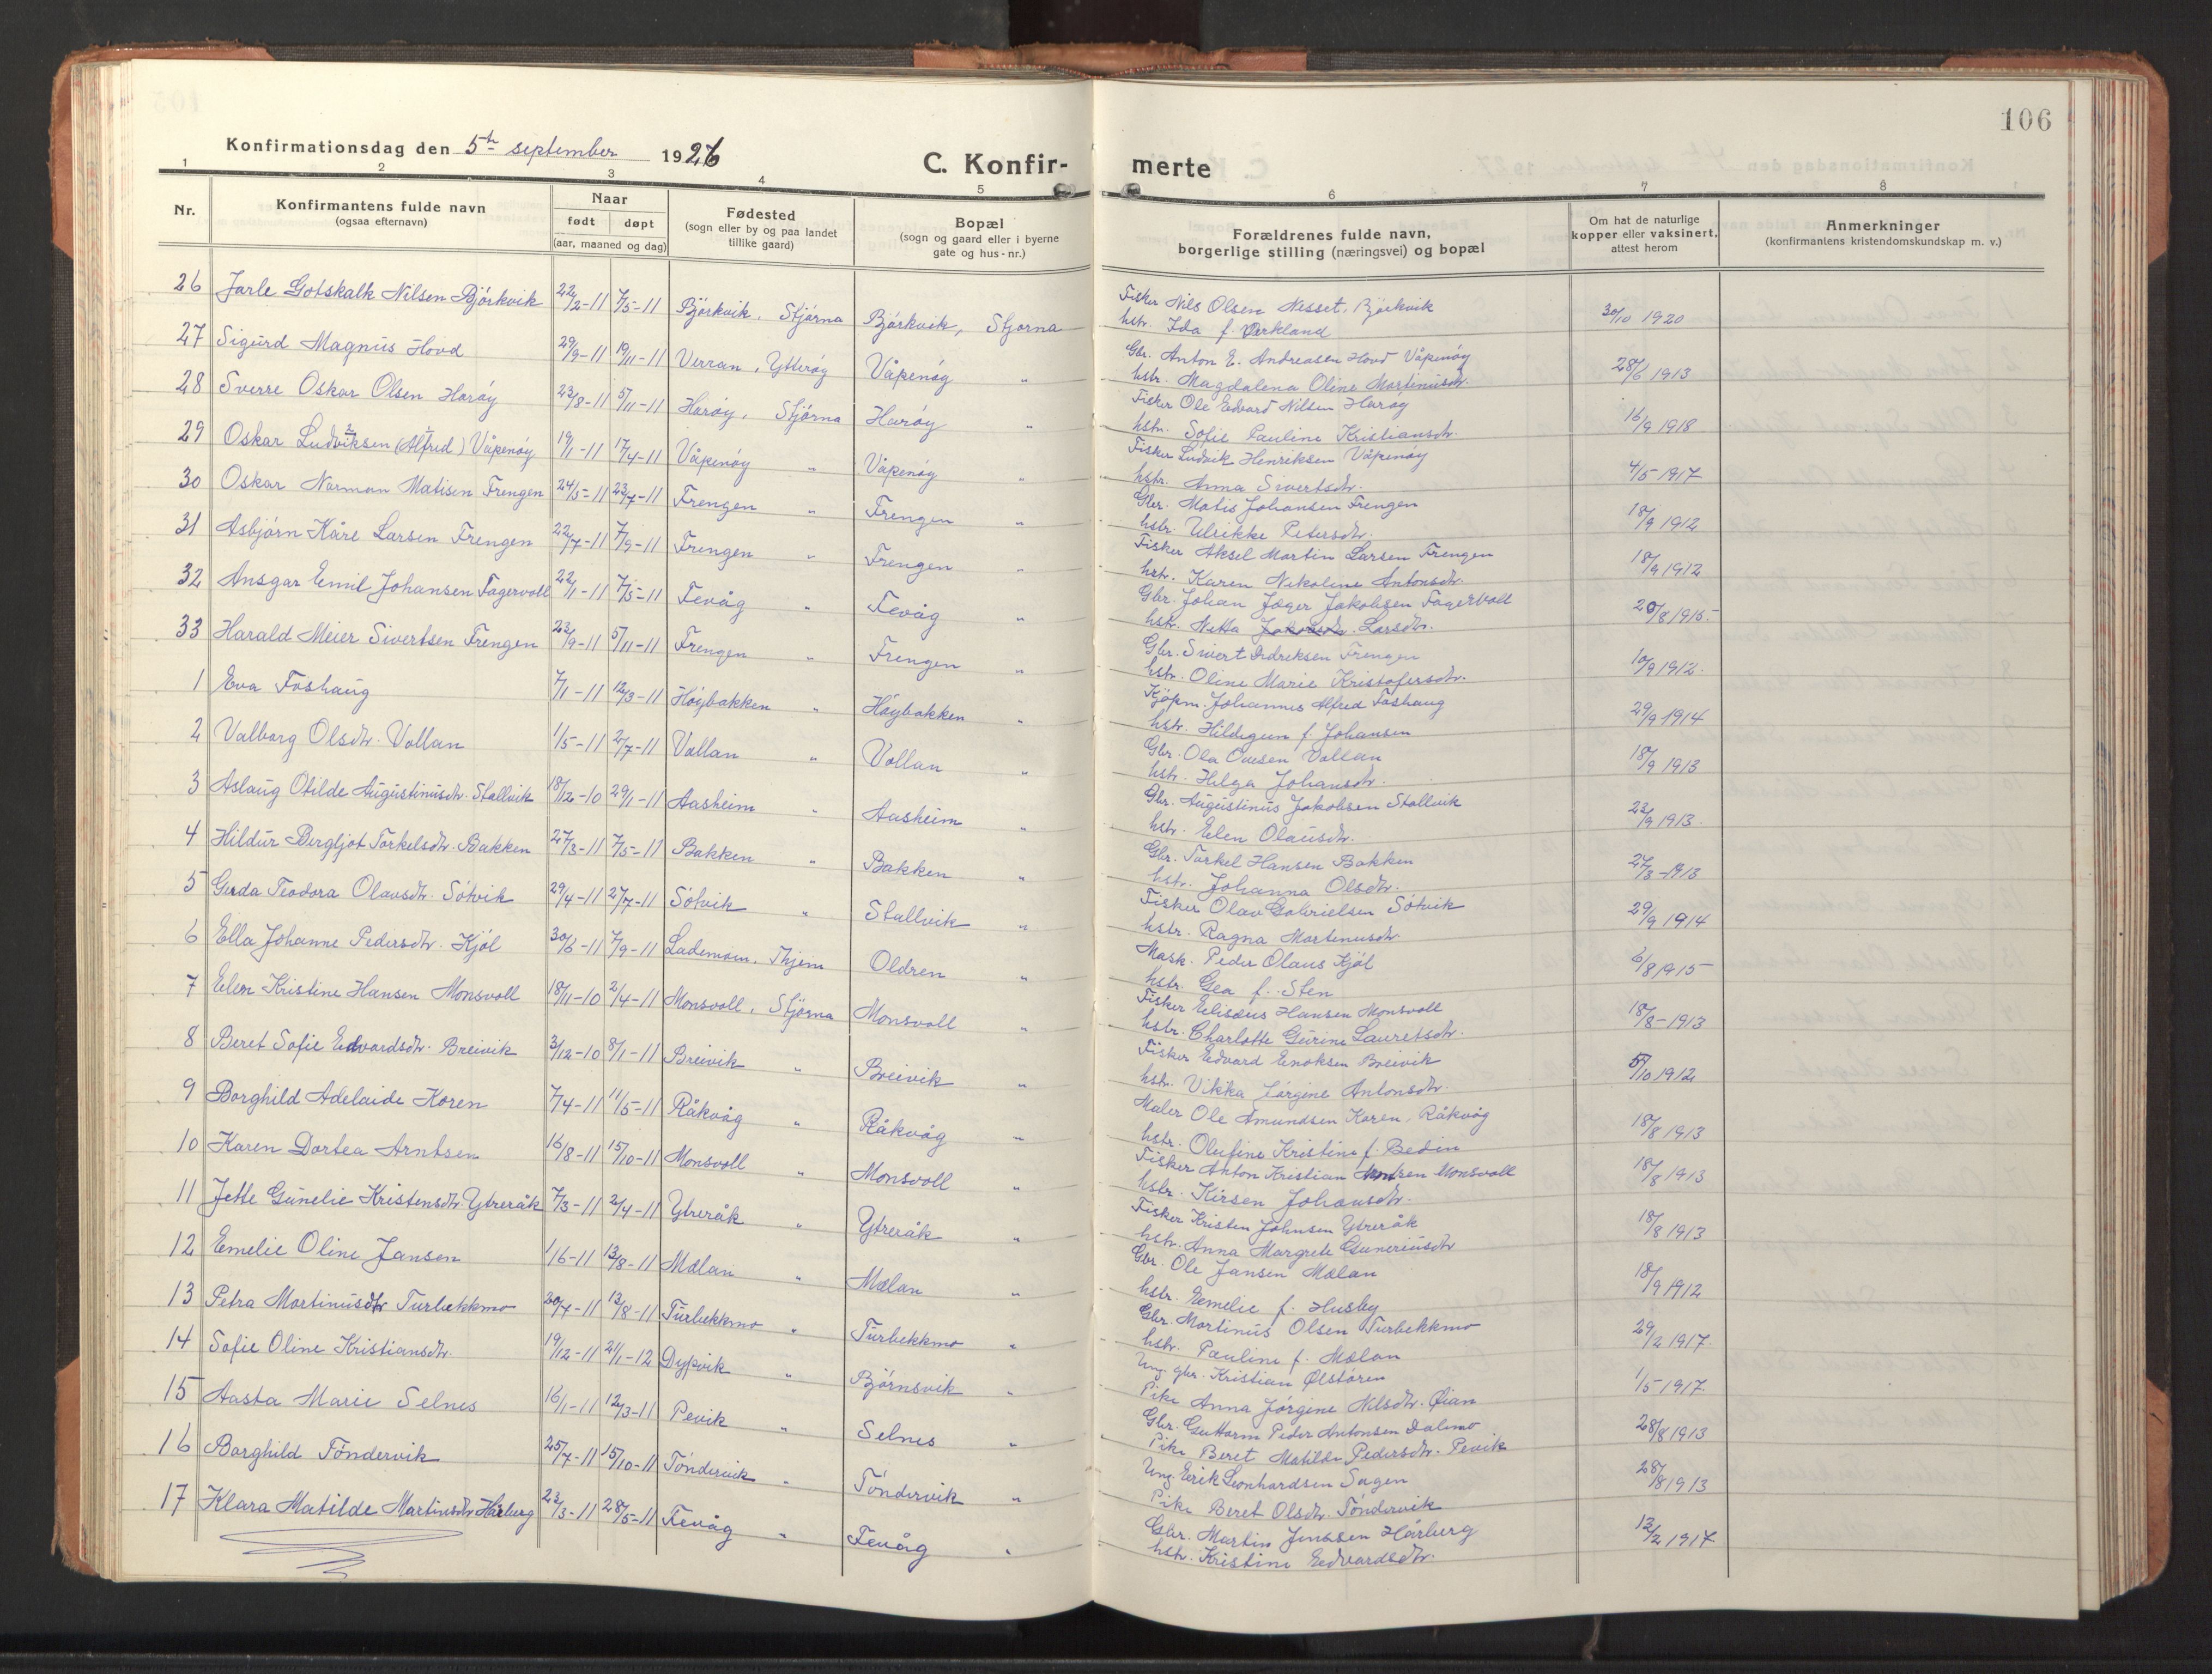 106
Konfirmationsdag den 5te september 1926
C. Konfirmerte
1 2 3 4 5 6 7 8
Nr.
Konfirmantens fulde navn
(ogsaa efternavn)
Naar
født døpt
(aar, maaned og dag)
Fødested
(sogn eller by og paa landet
tillike gaard)
Bopæl
(sogn og gaard eller i byerne
gate og hus-nr.)
Forældrenes fulde navn,
borgerlige stilling (næringsvei) og bopæl
Om hat de naturlige
kopper eller vaksinert,
attest herom
Anmerkninger
(konfirmantens kristendomskundskap m. v.)
26 Jarle Gotskalk Nilsen Björkvik 22/2-11 7/5-11 Björkvik, Stjørna Björkvik, Stjorna Fisker Nils Olsen Nesset, Björkvik 30/10 1920
hstr. Ida f. Verkland
27 Sigurd Magnus Hovd 29/9-11 19/11-11 Verran, Ytterøy Våpenøy " Gbr. Anton E. Andreasen Hovd Våpenøy 28/6 1913
hstr. Magdalena Oline Martinusdtr.
28 Sverre Oskar Olsen Harøy 23/8-11 5/11-11 Harøy, Stjørna Harøy " Fisker Ole Edvard Nilsen Harøy 16/9 1918
hstr. Sofie Pauline Kristiansdtr.
29 Oskar Ludviksen (Alfred) Våpenøy 19/1-11 17/4-11 Våpenøy " Våpenøy " Fisker Ludvik Henriksen Våpenøy 4/5 1917
hstr. Anna Sivertsdtr.
30 Oskar Norman Matisen Frengen 24/5-11 23/7-11 Frengen " Frengen " Gbr. Matis Johansen Frengen 18/9 1912
hstr. Ulrikke Petersdtr.
31 Asbjørn Kåre Larsen Frengen 22/7-11 7/9-11 Frengen " Frengen " Fisker Aksel Martin Larsen Frengen 18/9 1912
hstr. Karen Nikoline Antonsdtr.
32 Ansgar Emil Johansen Fagervoll 22/1-11 7/5-11 Fevåg " Fevåg " Gbr. Johan Jæger Jakobsen Fagervoll 20/8 1915.
hstr. Netta Larsdtr.
33 Harald Meier Sivertsen Frengen 23/9-11 5/11-11 Frengen " Frengen " Gbr. Sivert Indreksen Frengen 10/9 1912.
hstr. Oline Marie Kristofersdtr.
1 Eva Foshaug 7/1-11 12/3-11 Høybakken " Høybakken " Kjøpm. Johannes Alfred Foshaug 29/9 1914
hstr. Hildegun f. Johansen
2 Valborg Olsdtr. Vollan 1/5-11 2/7-11 Vollan " Vollan " Gbr. Ola Ovesen Vollan 18/9 1913
hstr. Helga Johansdtr.
3 Aslaug Otilde Augustinusdtr. Stallvik 18/12-10 29/1-11 Aasheim " Aasheim " Gbr. Augustinus Jakobsen Stallvik 23/9 1913.
hstr. Elen Olausdtr.
4 Hildur Bergljot Torkelsdtr. Bakken 27/3-11 7/5-11 Bakken " Bakken " Gbr. Torkel Hansen Bakken 27/3-1913
hstr. Johanna Olsdtr.
5 Gerda Teodora Olavsdtr. Søtvik 29/4-11 27/7-11 Søtvik " Stallvik " Fisker Olav Gabrielsen Søtvik 29/9 1914
hstr. Ragna Martenusdtr.
6 Ella Johanne Pedersdtr. Kjøl 30/6-11 7/9-11 Lademoen, Thjem Oldren " Mask. Peder Olaus Kjøl 6/8 1915
hstr. Gea f. Sten
7 Elen Kristine Hansen Monsvoll 18/11-10 2/4-11 Monsvoll, Stjørna Monsvoll " Fisker Eliseus Hansen Monsvoll 18/8-1913
hstr. Charlotte Gurine Lauretsdtr.
8 Beret Sofie Edvardsdtr. Breivik 3/12-10 8/1-11 Breivik " Breivik " Fisker Edvard Enoksen Breivik 5/10 1912
hstr. Vikka Jørgine Antonsdtr.
9 Borghild Adelaide Koren 7/4-11 11/5-11 Råkvåg " Råkvåg " Maler Ole Amundsen Koren, Råkvåg 18/8 1913
hstr. Olufine Kristine f. Bedin
10 Karen Dortea Arntsen 16/8-11 15/10-11 Monsvoll " Monsvoll " Fisker Anton Kristian Arntsen Monsvoll 18/8 1913
hstr. Kirsen Johansdtr.
11 Jette Gunelie Kristensdtr. Ytreråk 7/3-11 2/4-11 Ytreråk " Ytreråk " Fisker Kristen Johnsen Ytreråk 18/8 1913
hstr. Anna Margrete Guneriusdtr
12 Emelie Oline Jansen 1/6-11 13/8-11 Mælan " Mælan " Gbr. Ole Jansen Mælan 18/9 1912
hstr. Emelie f. Husby
13 Petra Martinusdtr Turbekkmo 20/7-11 13/8-11 Turbekkmo " Turbekkmo " Gbr. Martinus Olsen Turbekkmo 29/2 1917.
hstr. Pauline f. Mælan
14 Sofie Oline Kristiansdtr. 19/12-11 21/1-12 Dypvik " Björnsvik " Ung. gbr. Kristian Ølstøren 1/5 1917.
Pike Anna Jørgine Nilsdtr. Øian
15 Aasta Marie Selnes 16/1-11 12/3-11 Pevik " Selnes " Gbr. Guttorm Peder Antonsen Dalmo 28/8 1913
Pike Beret Matilde Pedersdtr. Pevik
16 Borghild Tøndervik 25/7-11 15/10-11 Tøndervik " Tøndervik " Ung. Erik Leonhardsen Sagen 28/8 1913
Pike Beret Olsdtr. Tøndervik
17 Klara Matilde Martinsdtr Hårberg 23/3-11 28/5-11 Fevåg " Fevåg " Gbr. Martin Jensen Hårberg 12/2 1917
hstr. Kristine Edvardsdtr.